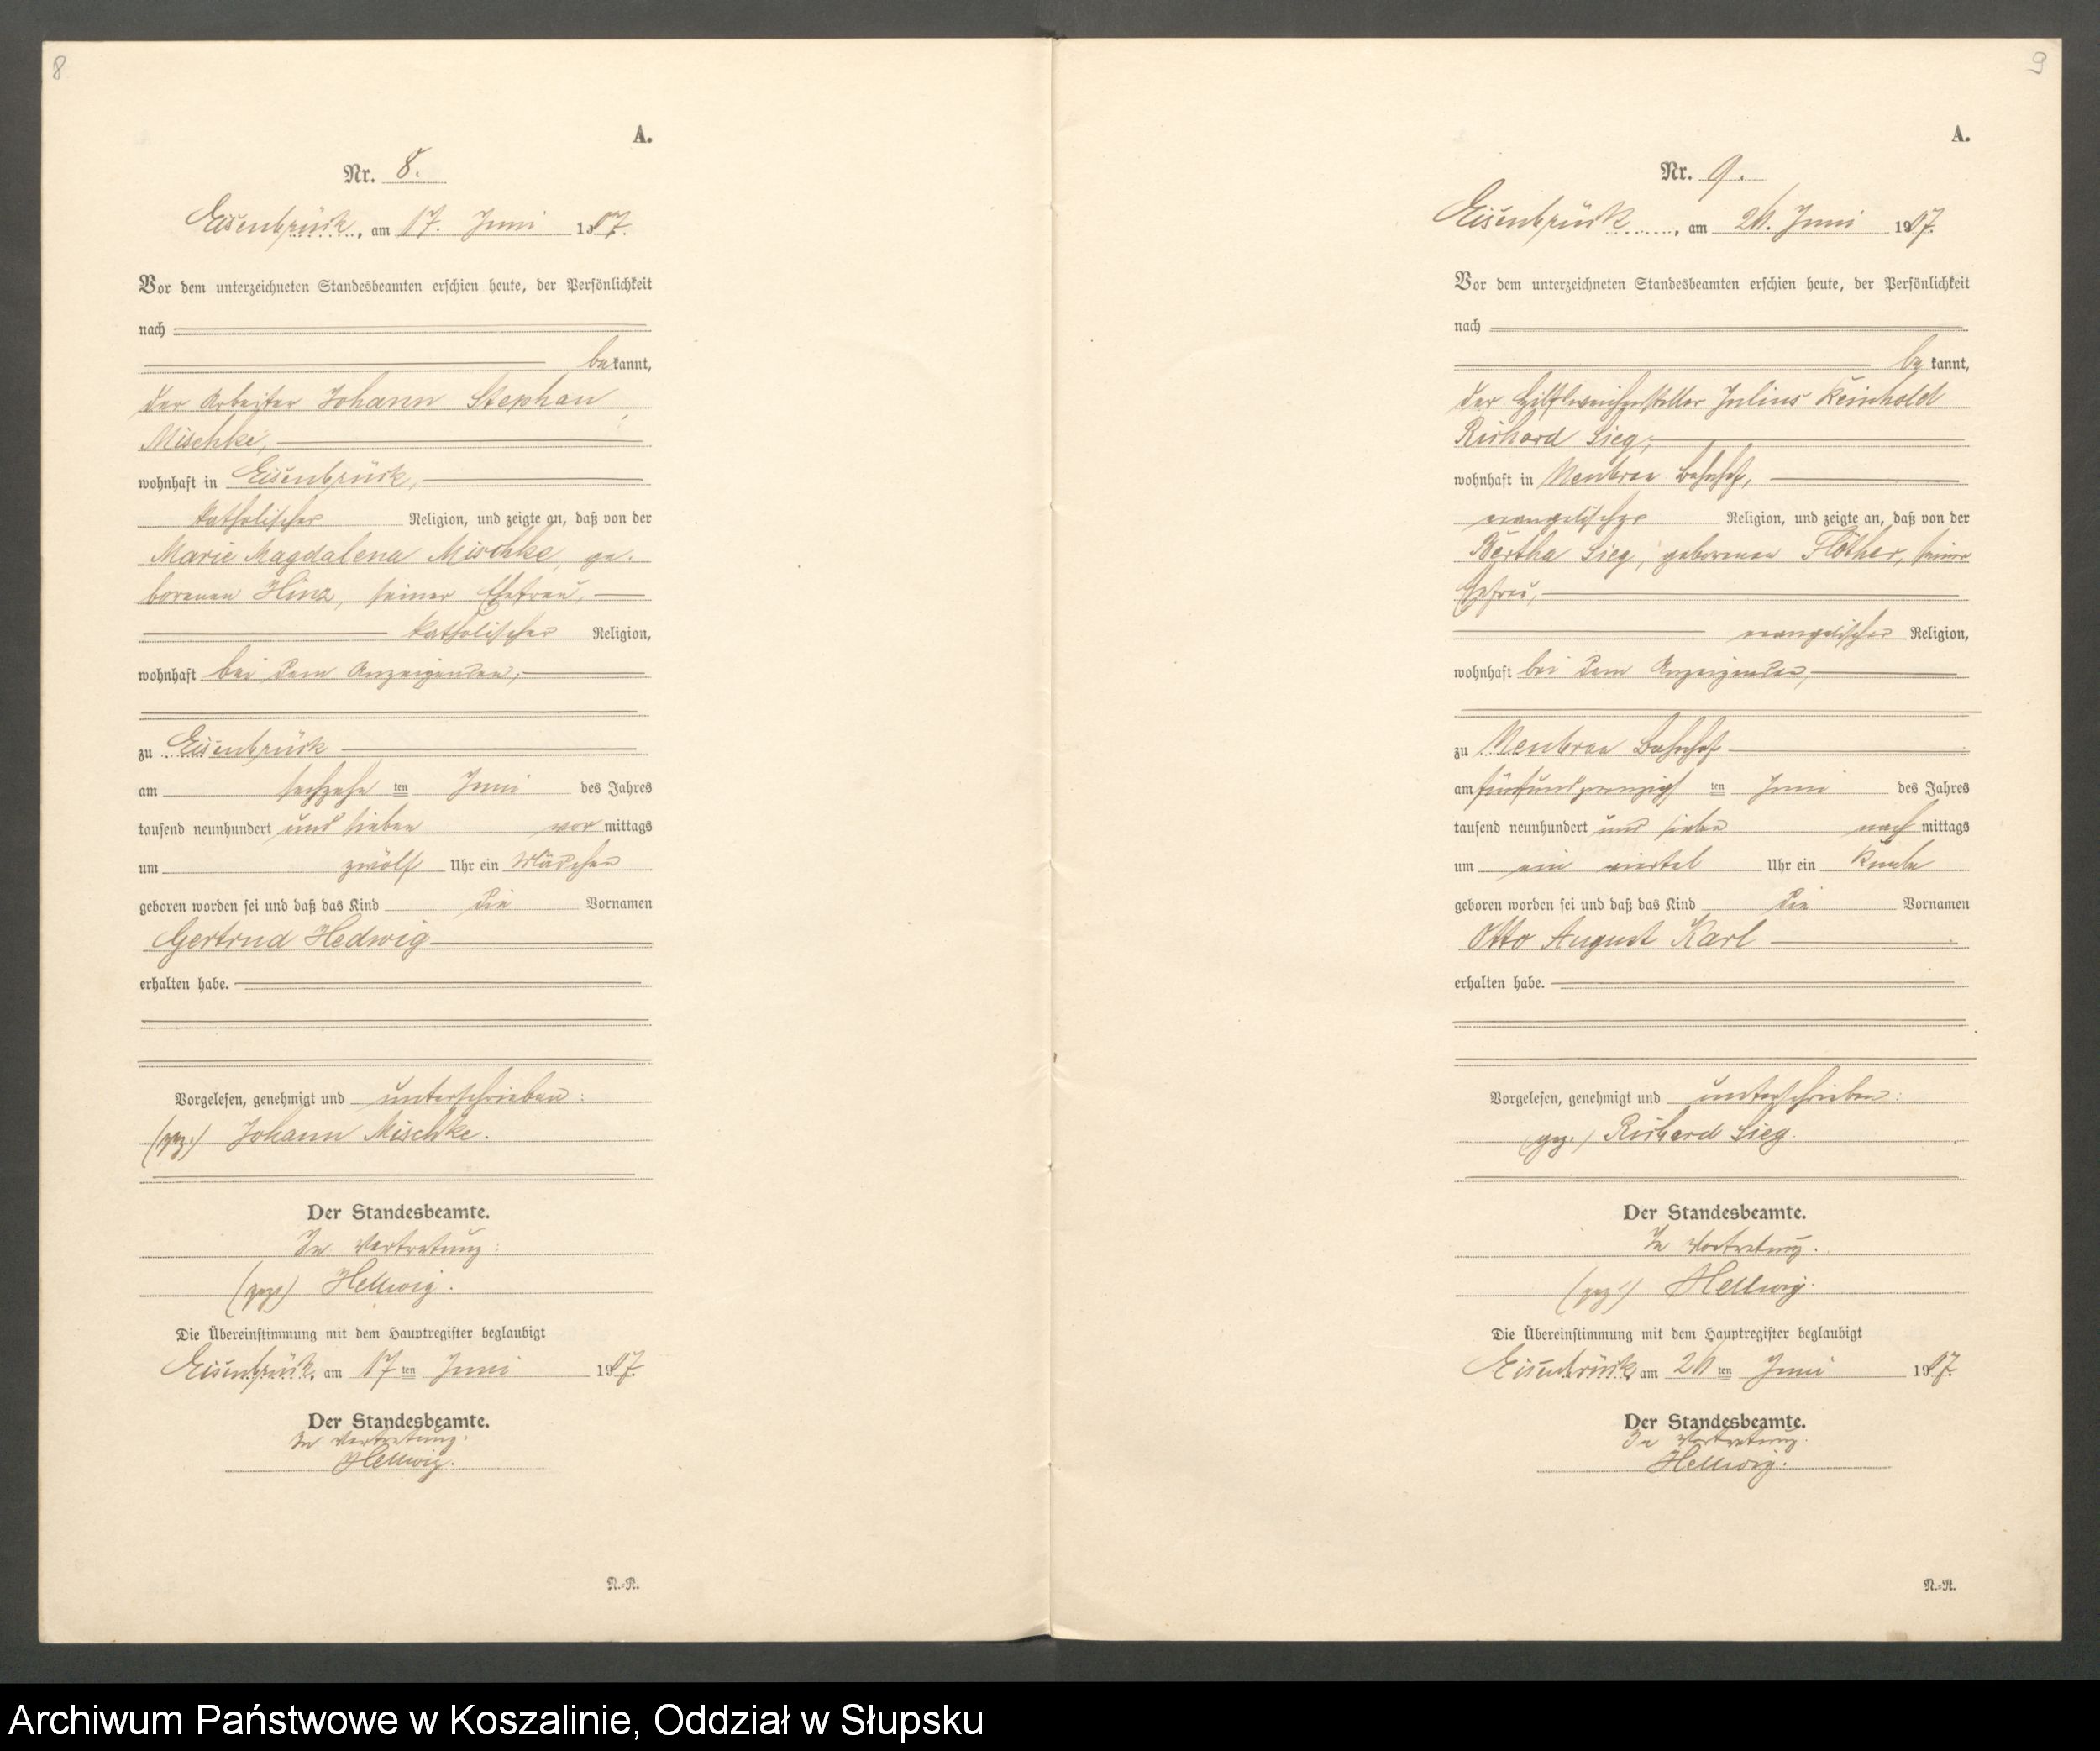 8
A.
Nr. 8.
Eisenbrück, am 17. Juni 1907.
Vor dem unterzeichneten Standesbeamten erschien heute, der Persönlichkeit
nach
bekannt,
der Arbeiter Johann Stephan
Mischke,
wohnhaft in Eisenbrück,
katholischer Religion, und zeigte an, daß von der
Marie Magdalena Mischke, ge-
borenen Hinz, seiner Ehefrau,
katholischer Religion,
wohnhaft bei dem Anzeigenden,
zu Eisenbrück
am sechzehnten Juni des Jahres
tausend neunhundert und sieben vormittags
um zwölf Uhr ein Mädchen
geboren worden sei und daß das Kind die Vornamen
Gertrud Hedwig
erhalten habe.
Vorgelesen, genehmigt und unterschrieben:
(gez.) Johann Mischke.
Der Standesbeamte.
In Vertretung:
(gez.) Hellwig.
Die Übereinstimmung mit dem Hauptregister beglaubigt
Eisenbrück, am 17ten Juni 1907.
Der Standesbeamte.
In Vertretung:
Hellwig.
N.-R.
9
A.
Nr. 9.
Eisenbrück, am 26. Juni 1907.
Vor dem unterzeichneten Standesbeamten erschien heute, der Persönlichkeit
nach
bekannt,
der Hilfsweichensteller Julius Reinhold
Richard Sieg,
wohnhaft in Neubraa Bahnhof,
evangelischer Religion, und zeigte an, daß von der
Bertha Sieg, geborenen Flöther, seiner
Ehefrau,
evangelischer Religion,
wohnhaft bei dem Anzeigenden,
zu Neubraa Bahnhof
am fünfundzwanzigsten Juni des Jahres
tausend neunhundert und sieben nachmittags
um ein viertel Uhr ein Knabe
geboren worden sei und daß das Kind die Vornamen
Otto August Karl
erhalten habe.
Vorgelesen, genehmigt und unterschrieben:
(gez.) Richard Sieg.
Der Standesbeamte.
In Vertretung.
(gez.) Hellwig.
Die Übereinstimmung mit dem Hauptregister beglaubigt
Eisenbrück, am 26ten Juni 1907.
Der Standesbeamte.
In Vertretung.
Hellwig.
N.-R.
Archiwum Państwowe w Koszalinie, Oddział w Słupsku